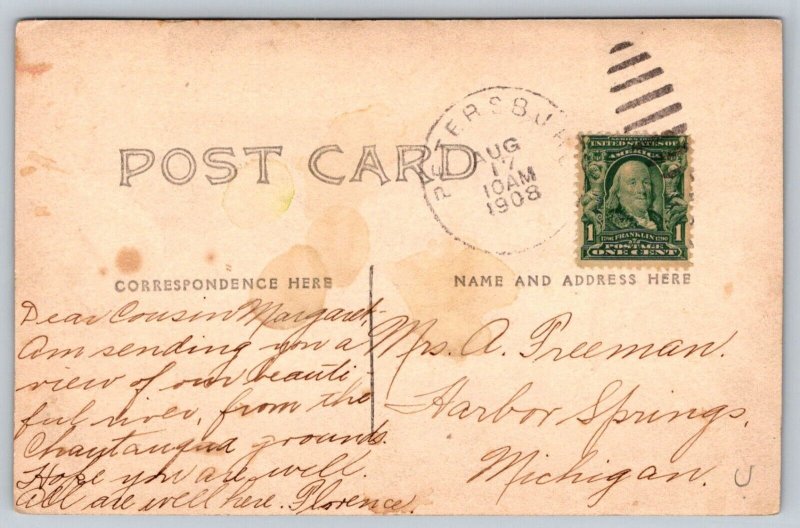 POST CARD
PETERSBU
AUG
17
10AM
1908
SERIES 1902
UNITED STATES OF
AMERICA
1 1
1706 FRANKLIN 1790
POSTAGE
ONE CENT
CORRESPONDENCE HERE
NAME AND ADDRESS HERE
Dear Cousin Margaret,
Am sending you a
view of our beauti
ful river, from the
Chautauqua grounds.
Hope you are well.
All are well here. Florence.
Mrs. A. Freeman.
Harbor Springs,
Michigan.
U